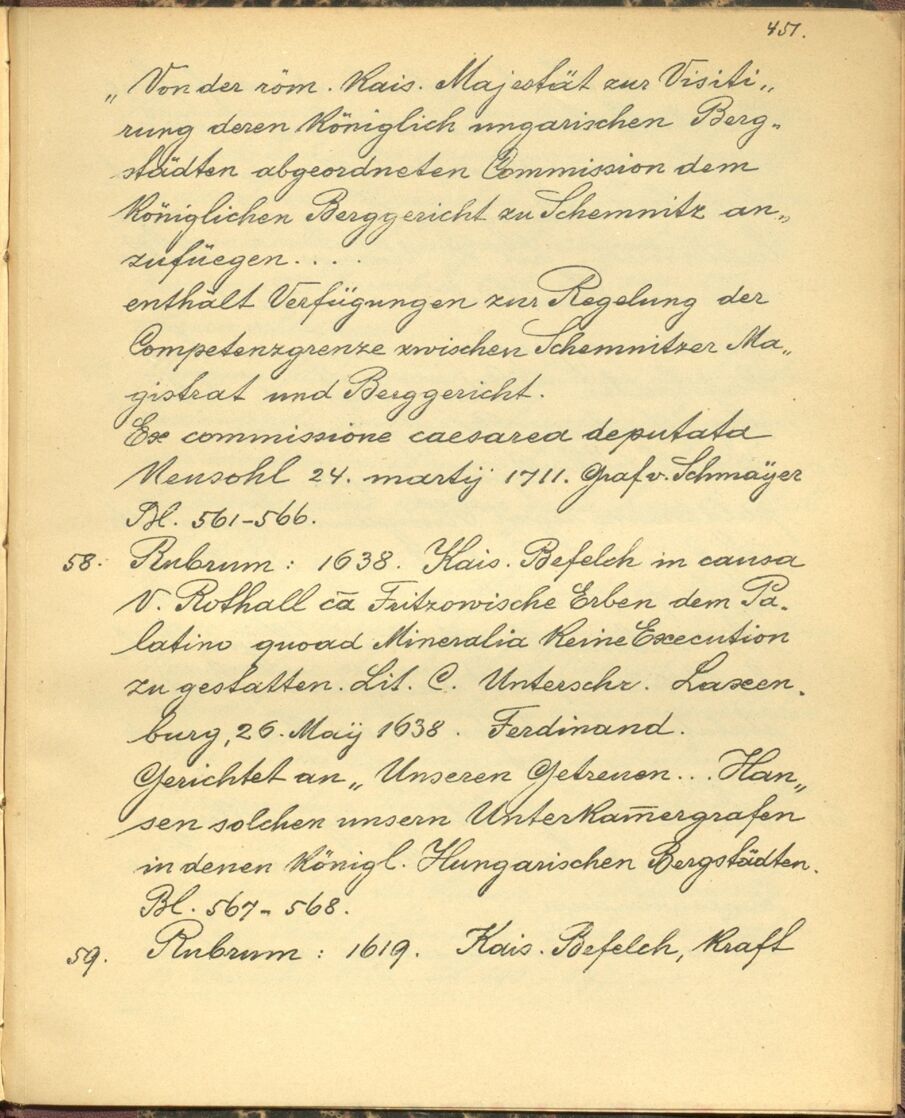 451.
„Von der röm. Kais. Majestät zur Visiti„
rung deren Königlich ungarischen Berg„
städten abgeordneten Commission dem
Königlichen Berggericht zu Schemnitz an„
zufüegen....
enthält Verfügungen zur Regelung der
Competenzgrenze zwischen Schemnitzer Ma„
gistrat und Berggericht.
Ex commissione caesarea deputata
Neusohl 24. martij 1711. Graf v. Schmäÿer
Bl. 561-566.
58. Rubrum: 1638. Kais. Befelch in causa
V. Rothall cā Fritzowische Erben dem Pa-
latino quoad Mineralia Keine Execution
zu gestatten. Lit. C. Unterschr. Laxen-
burg, 26. Maÿ 1638. Ferdinand.
Gerichtet an „Unseren Getreuen... Han„
sen solchen unsern Unterkam̄ergrafen
in denen Königl. Hungarischen Bergstädten.
Bl. 567-568.
59. Rubrum: 1619. Kais. Befelch, Kraft